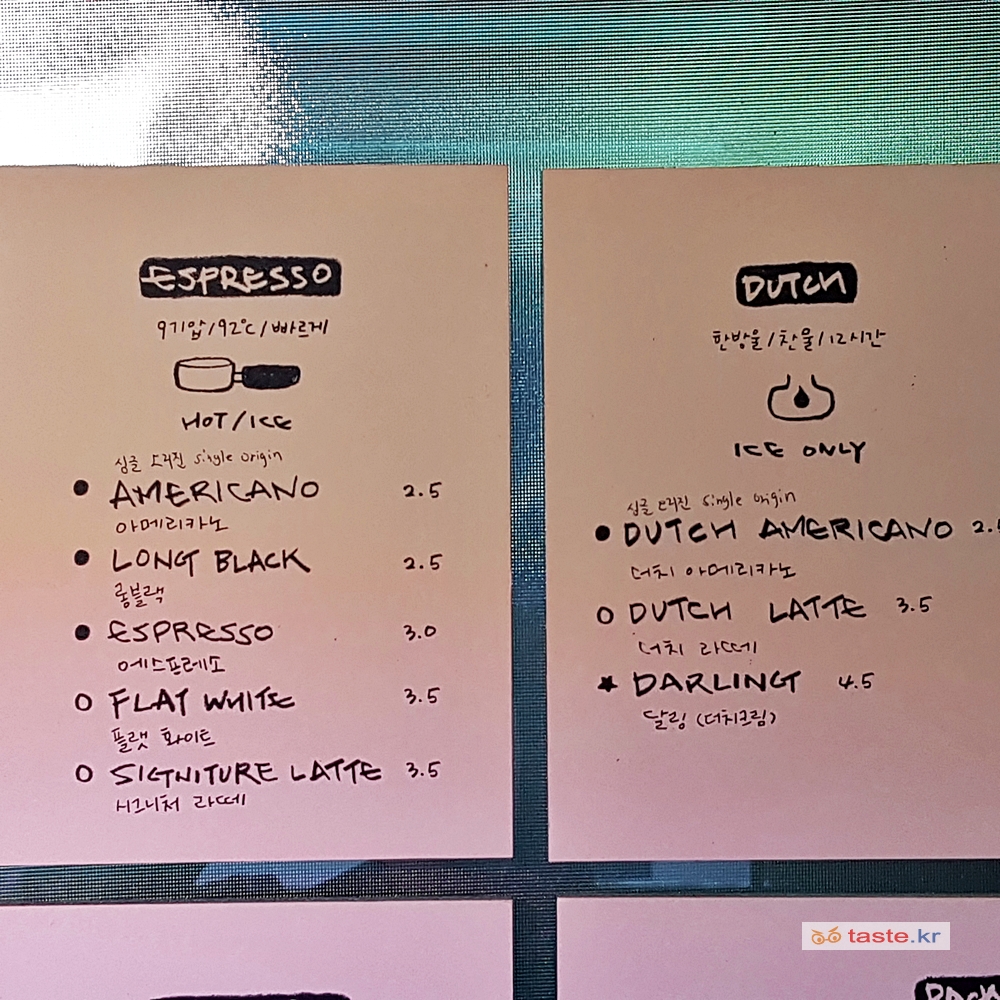 ESPRESSO
9기압/92℃/빠르게
HOT/ICE
싱글 오리진 single origin
● AMERICANO 2.5
아메리카노
● LONG BLACK 2.5
롱블랙
● ESPRESSO 3.0
에스프레소
○ FLAT WHITE 3.5
플랫 화이트
○ SIGNITURE LATTE 3.5
시그니처 라떼
DUTCH
한방울/찬물/12시간
ICE ONLY
싱글 오리진 single origin
● DUTCH AMERICANO
더치 아메리카노
○ DUTCH LATTE 3.5
더치 라떼
★ DARLING 4.5
달링 (더치크림)
taste.kr